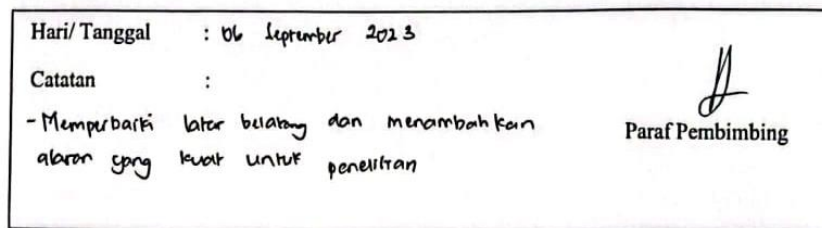 Hari/ Tanggal : 06 September 2023
Catatan :
- Memperbaiki latar belakang dan menambahkan
alasan yang kuat untuk penelitian
Paraf Pembimbing